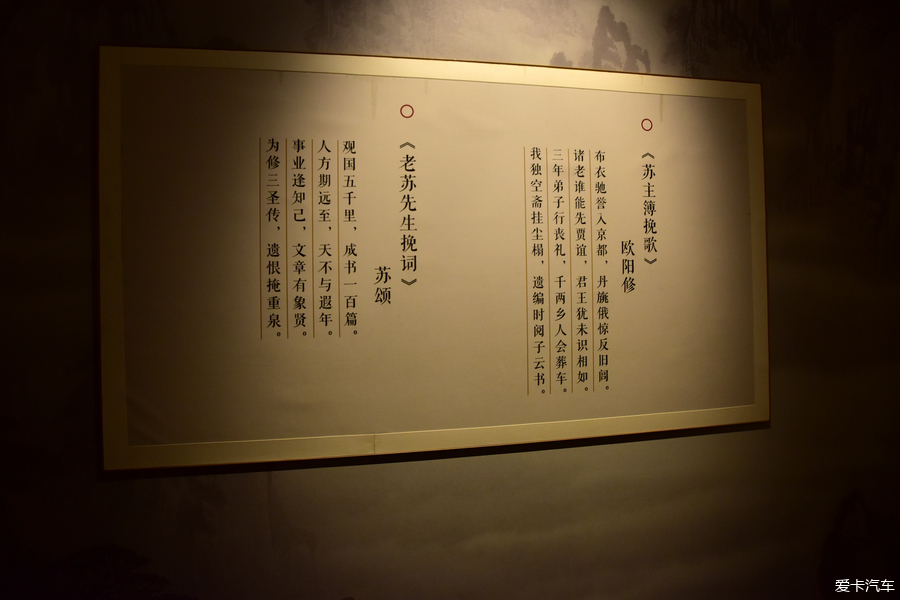 《苏主簿挽歌》
欧阳修
布衣驰誉入京都，丹旐俄惊反旧闾。
诸老谁能先贾谊，君王犹未识相如。
三年弟子行丧礼，千两乡人会葬车。
我独空斋挂尘榻，遗编时阅子云书。
《老苏先生挽词》
苏颂
观国五千里，成书一百篇。
人方期远至，天不与遐年。
事业逢知己，文章有象贤。
为修三圣传，遗恨掩重泉。
爱卡汽车